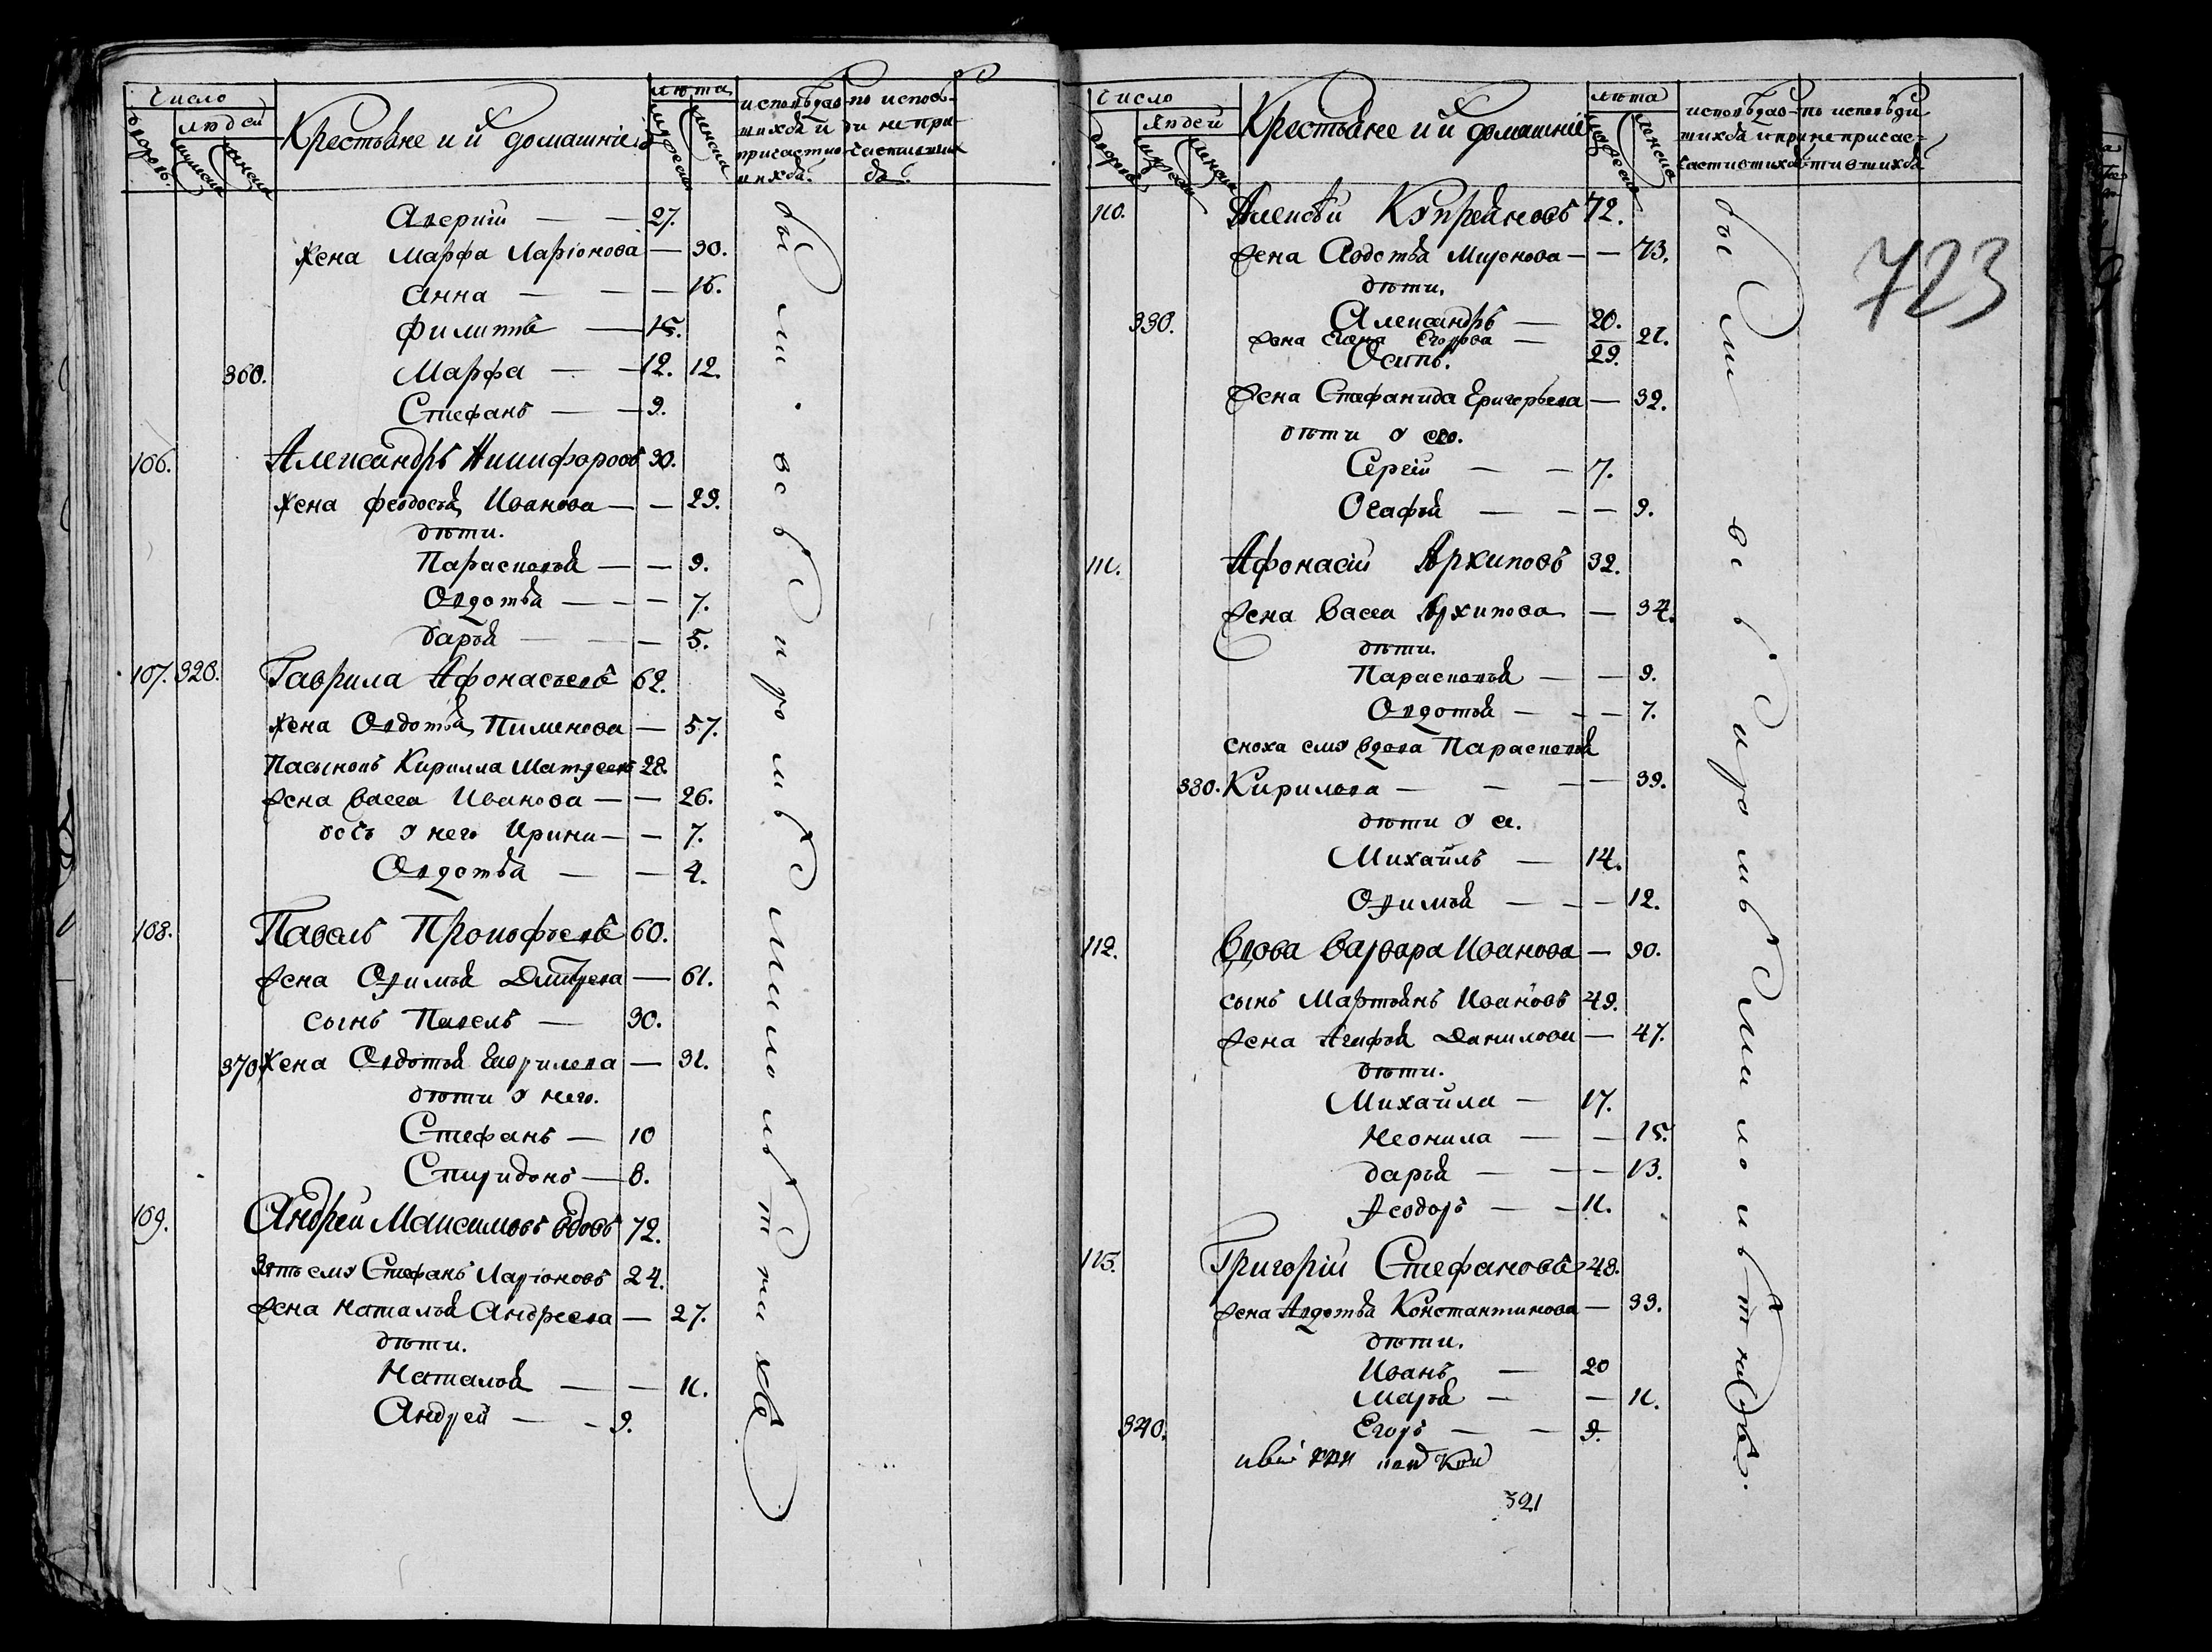 Число
людей
дворовъ.
мужеска
женска
Крестьяне и их домашніе
лѣта
мужеска
женска
исповѣдав-
шихся и
причастив-
шихся.
по исповѣ-
ди не при-
частивших
ся.
Аверкій — — 27.
жена Марфа Ларіонова — 30.
Анна — — — 16.
Филиппъ — 15.
360. Марфа — — 12. 12.
Стефанъ — — 9.
106. Александръ Никифоровъ 30.
жена Феодосья Иванова — — 29.
дѣти.
Парасковья — — 9.
Овдотья — — — 7.
Дарья — — — 5.
107. 320. Гаврила Афонасьевъ 62.
жена Овдотья Пименова — 57.
Пасынокъ Кирилла Матвеевъ 28.
жена Васса Иванова — — 26.
дочь у него Ирина — — 7.
Овдотья — — 4.
108. Павелъ Прокофьевъ 60.
жена Офимья Дмитрева — 61.
сынъ Павелъ — 30.
370 жена Овдотья Гаврилова — 31.
дѣти у него.
Стефанъ — 10
Спиридонъ — 8.
109. Андрей Максимовъ вдовъ 72.
Зять ему Стефанъ Ларіоновъ 24.
жена Наталья Андреева — 27.
дѣти.
Наталья — — 11.
Андрей — — 9.
были. всѣ и ромнѣ Мило лѣтнихъ
Число
людей
дворовъ
мужеска
женска
Крестьяне и их домашніе
лѣта
мужеска
женска
исповѣдав-
шихся и при
частившихся
по исповѣди
не причас-
тившихся
723
110. Алексѣй Купреяновъ 72.
жена Авдотья Миронова — — 73.
дѣти.
330. Александръ — 20.
жена Елена Егорова — — 21.
Осипъ. 29.
жена Стефанида Григорьева — 32.
дѣти у его.
Сергій — — 7.
Огафья — — — 9.
111. Афонасій Архиповъ 32.
жена Васса Архипова — 34.
дѣти.
Парасковья — — 9.
Овдотья — — — 7.
сноха ему вдова Парасковья
380. Кирилова — — — — 39.
дѣти у ея.
Михайлъ — 14.
Офимья — — — 12.
112. Вдова Варвара Иванова — 90.
сынъ Мартынъ Ивановъ 49.
жена Агафья Данилова — 47.
дѣти.
Михайла — 17.
Неонила — — 15.
Дарья — — — 13.
Феодоръ — — 11.
113. Григорій Стефановъ 48.
жена Авдотья Константинова — 39.
дѣти.
Иванъ — 20
Марья — — 11.
340. Егоръ — — 9.
321
были всѣ и ромнѣ Мило лѣтнихъ.